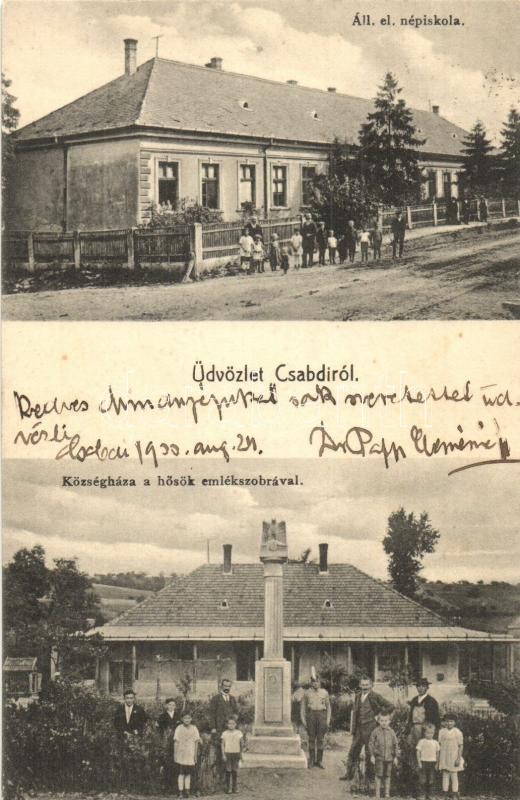 Áll. el. népiskola.
Üdvözlet Csabdiról.
Kedves sok szeretettel üd-
vözli
Csabdi 1933. aug. 29. Dr Papp
Községháza a hősök emlékszobrával.